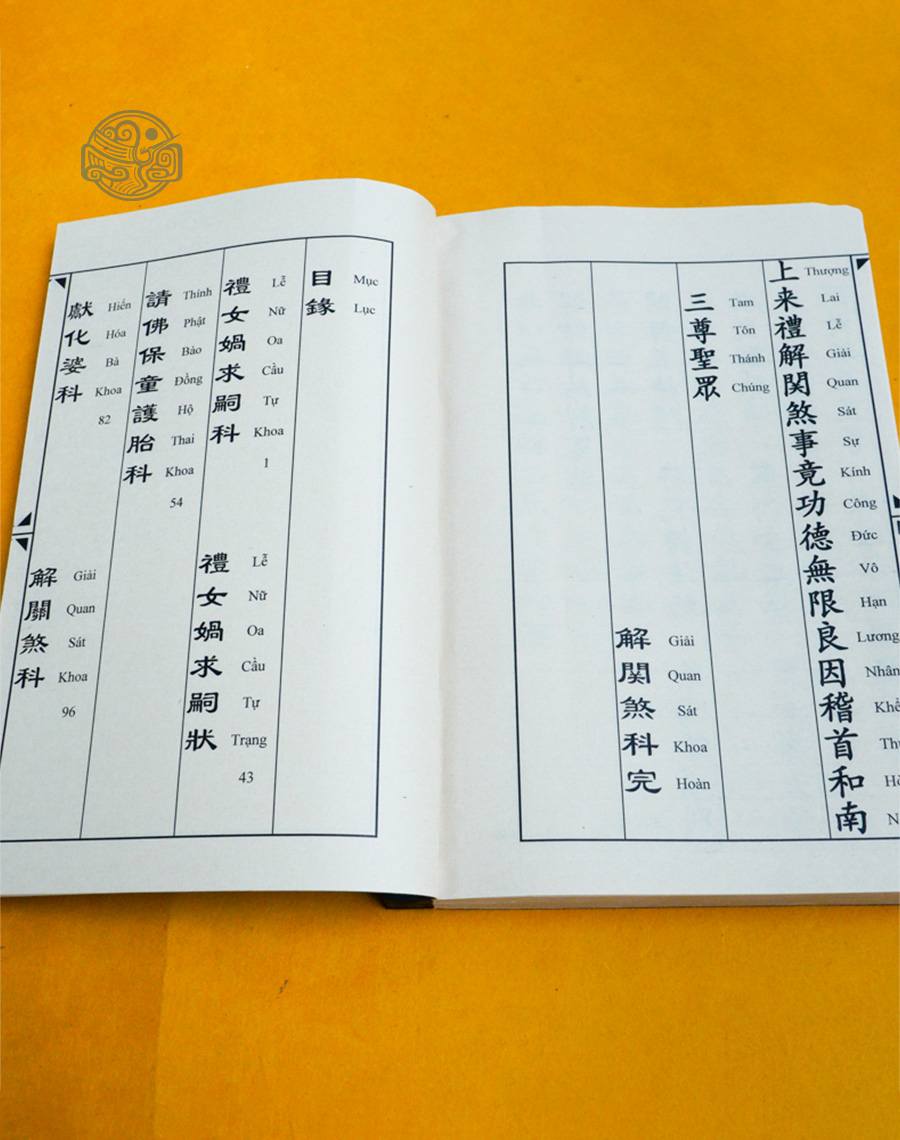 上来禮解関煞事竟功德無限良因稽首和南
Thượng Lai Lễ Giải Quan Sát Sự Kính Công Đức Vô Hạn Lương Nhân
三尊聖眾
Tam Tôn Thánh Chúng
解関煞科完
Giải Quan Sát Khoa Hoàn
目錄
Mục Lục
禮女媧求嗣科
Lễ Nữ Oa Cầu Tự Khoa 1
禮女媧求嗣狀
Lễ Nữ Oa Cầu Tự Trạng 43
請佛保童護胎科
Thỉnh Phật Bảo Đồng Hộ Thai Khoa 54
獻化婆科
Hiến Hóa Bà Khoa 82
解關煞科
Giải Quan Sát Khoa 96